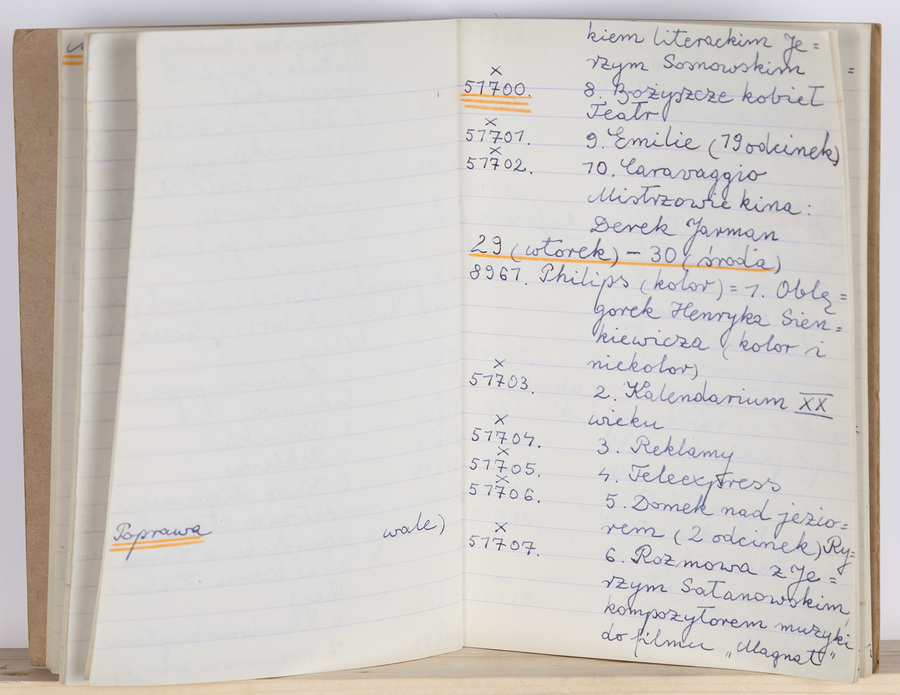 Poprawa wale)
kiem literackim Je=
rzym Sosnowskim
x
51700. 8. Bożyszcze kobiet
Teatr
x
51701. 9. Emilie (19 odcinek)
x
51702. 10. Caravaggio
Mistrzowie kina:
Derek Jarman
29 (wtorek) – 30 (środa)
8961. Philips (kolor) = 1. Oblę=
gorek Henryka Sien=
kiewicza (kolor i
niekolor)
x
51703. 2. Kalendarium XX
wieku
x
51704. 3. Reklamy
x
51705. 4. Teleexpress
x
51706. 5. Domek nad jezio=
rem (2 odcinek) Ry=
x
51707. 6. Rozmowa z Je=
rzym Satanowskim,
kompozytorem muzyki
do filmu „Magnat"